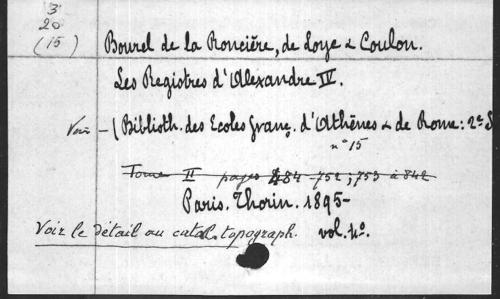 3
20
(15)
Bourel de la Roncière, de Loye & Coulon.
Les Registres d'Alexandre IV.
Voir – (Biblioth. des Ecoles franç. d'Athènes & de Rome: 2e S
n° 15
Tome II pages 484-752; 753 à 842
Paris. Thorin. 1895-
Voir le détail au catal. topograph. vol. 4°.